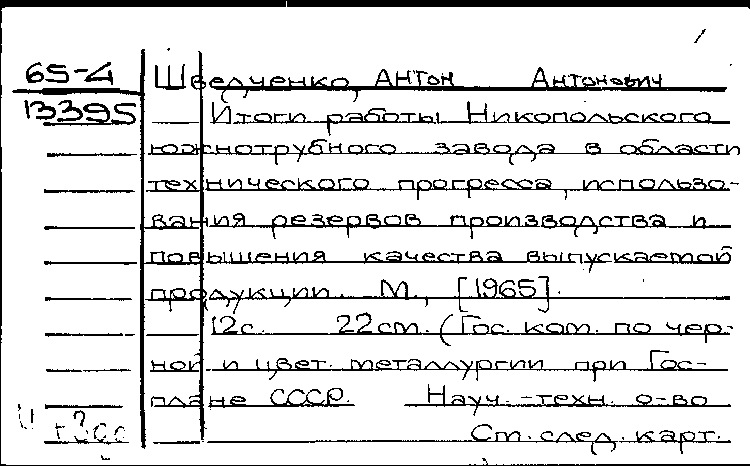 65-4
13395
Шведченко, Антон Антонович
Итоги работы Никопольского
южнотрубного завода в области
технического прогресса, использо-
вания резервов производства и
повышения качества выпускаемой
продукции. М., [1965].
12с. 22см. (Гос. ком. по чер-
ной и цвет. металлургии при Гос-
плане СССР. Науч.-техн. о-во
Ст. след. карт.